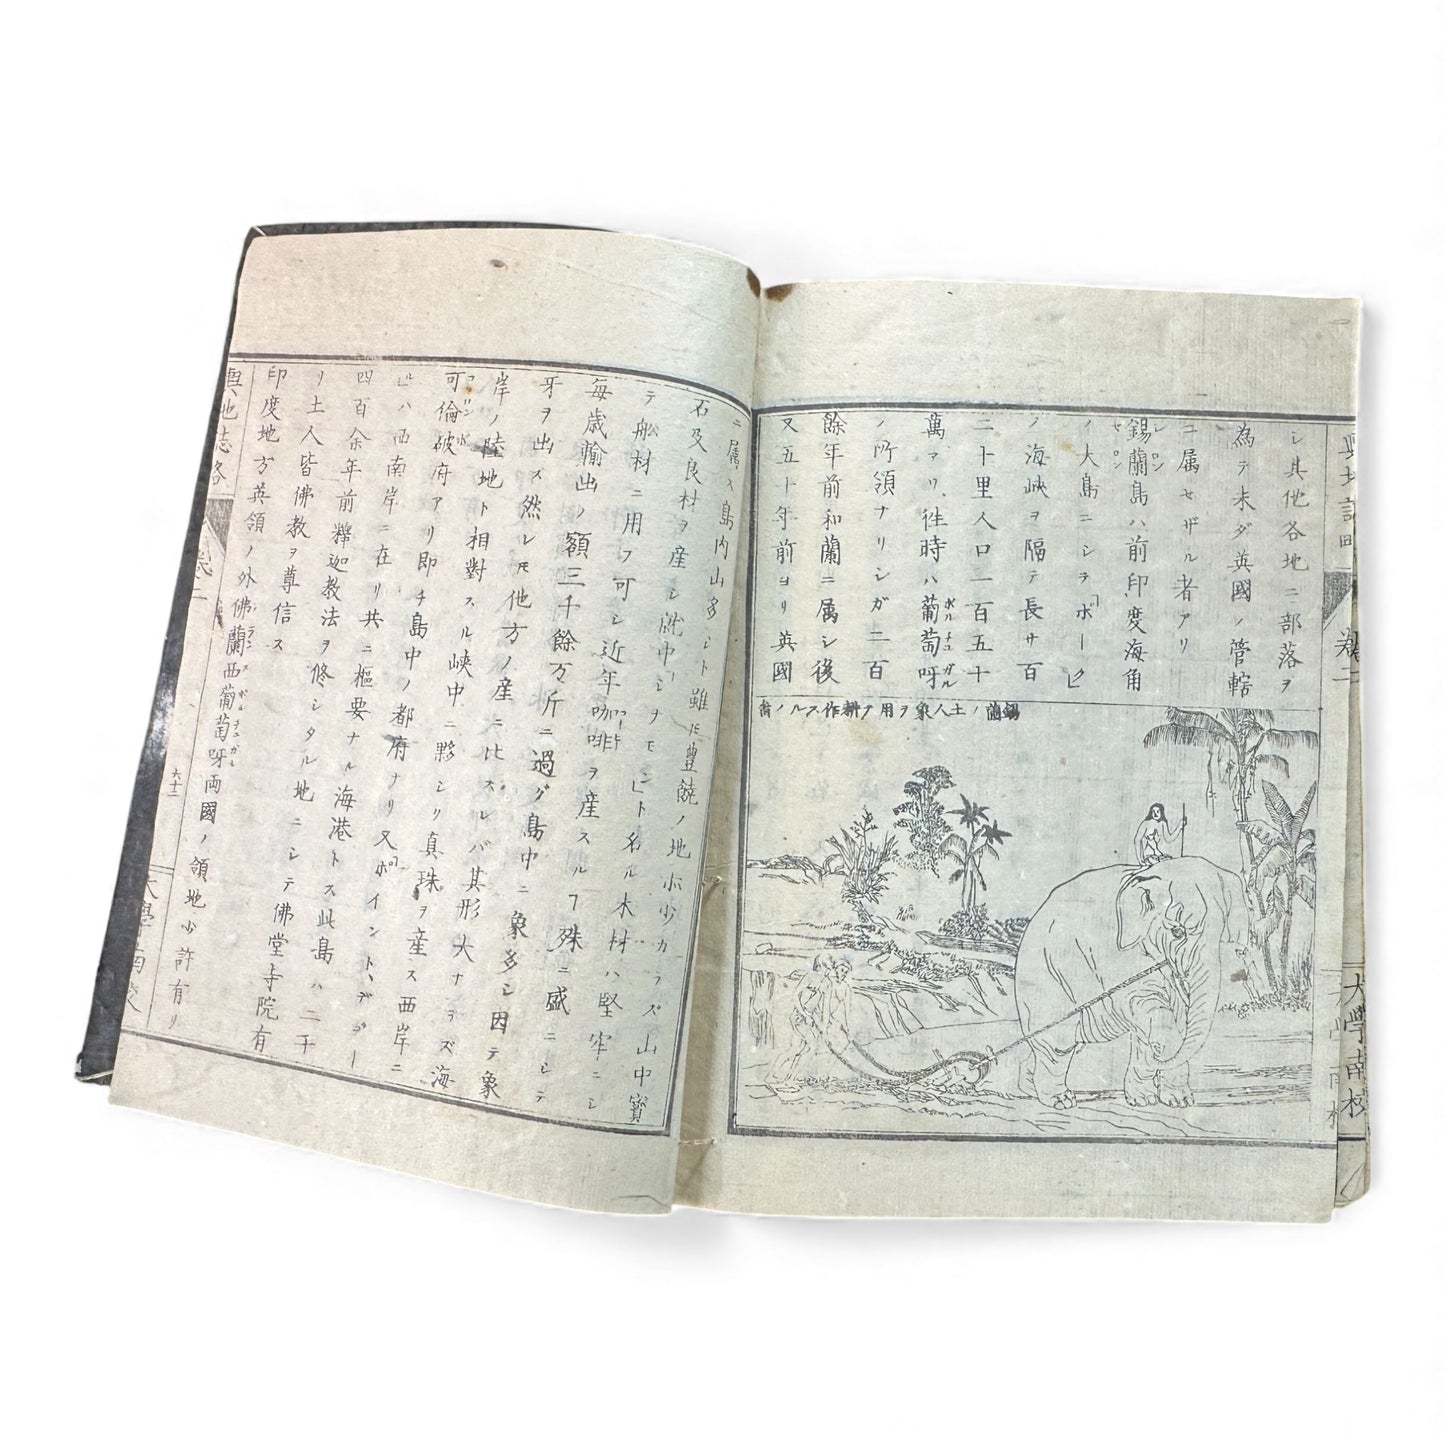 シ其他各地ニ部落ヲ
為テ未ダ英國ノ管轄
ニ属セザル者アリ
錫蘭島ハ前印度海角
セイロン
ノ大島ニシテ「ポーク」
ノ海峡ヲ隔テ長サ百
二十里人口一百五十
萬アリ徃時ハ葡萄呀
ポルチュガル
ノ所領ナリシガ二百
餘年前和蘭ニ属シ後
又五十年前ヨリ英國
錫蘭ノ土人象ヲ用テ耕作スルノ畧
ニ属ス島内山多シト雖𪜈豊饒ノ地亦少カラズ山中寳
石及良材ヲ産シ就中「シナモン」ト名ル木材ハ堅牢ニシ
テ舩材ニ用フ可シ近年咖啡ヲ産スルヿ殊ニ盛ニシテ
コーヒー
毎歳輸出ノ額三千餘万斤ニ過グ島中ニ象多シ因テ象
牙ヲ出ズ然レ𪜈他方ノ産ニ比スレバ其形大ナラズ海
岸ノ陸地ト相對スル峡中ニ夥シク真珠ヲ産ス西岸ニ
可倫破府アリ即チ島中ノ都府ナリ又「ポイント、デガー
コロンボ
ル」ハ西南岸ニ在リ共ニ樞要ナル海港トス此島ハ二千
四百余年前釋迦教法ヲ修シタル地ニシテ佛堂寺院有
リ土人皆佛教ヲ尊信ス
印度地方英領ノ外佛蘭西葡萄呀両國ノ領地少許有リ
フランス
ポルチュガル
輿地誌略
卷二
六十二
大學南校